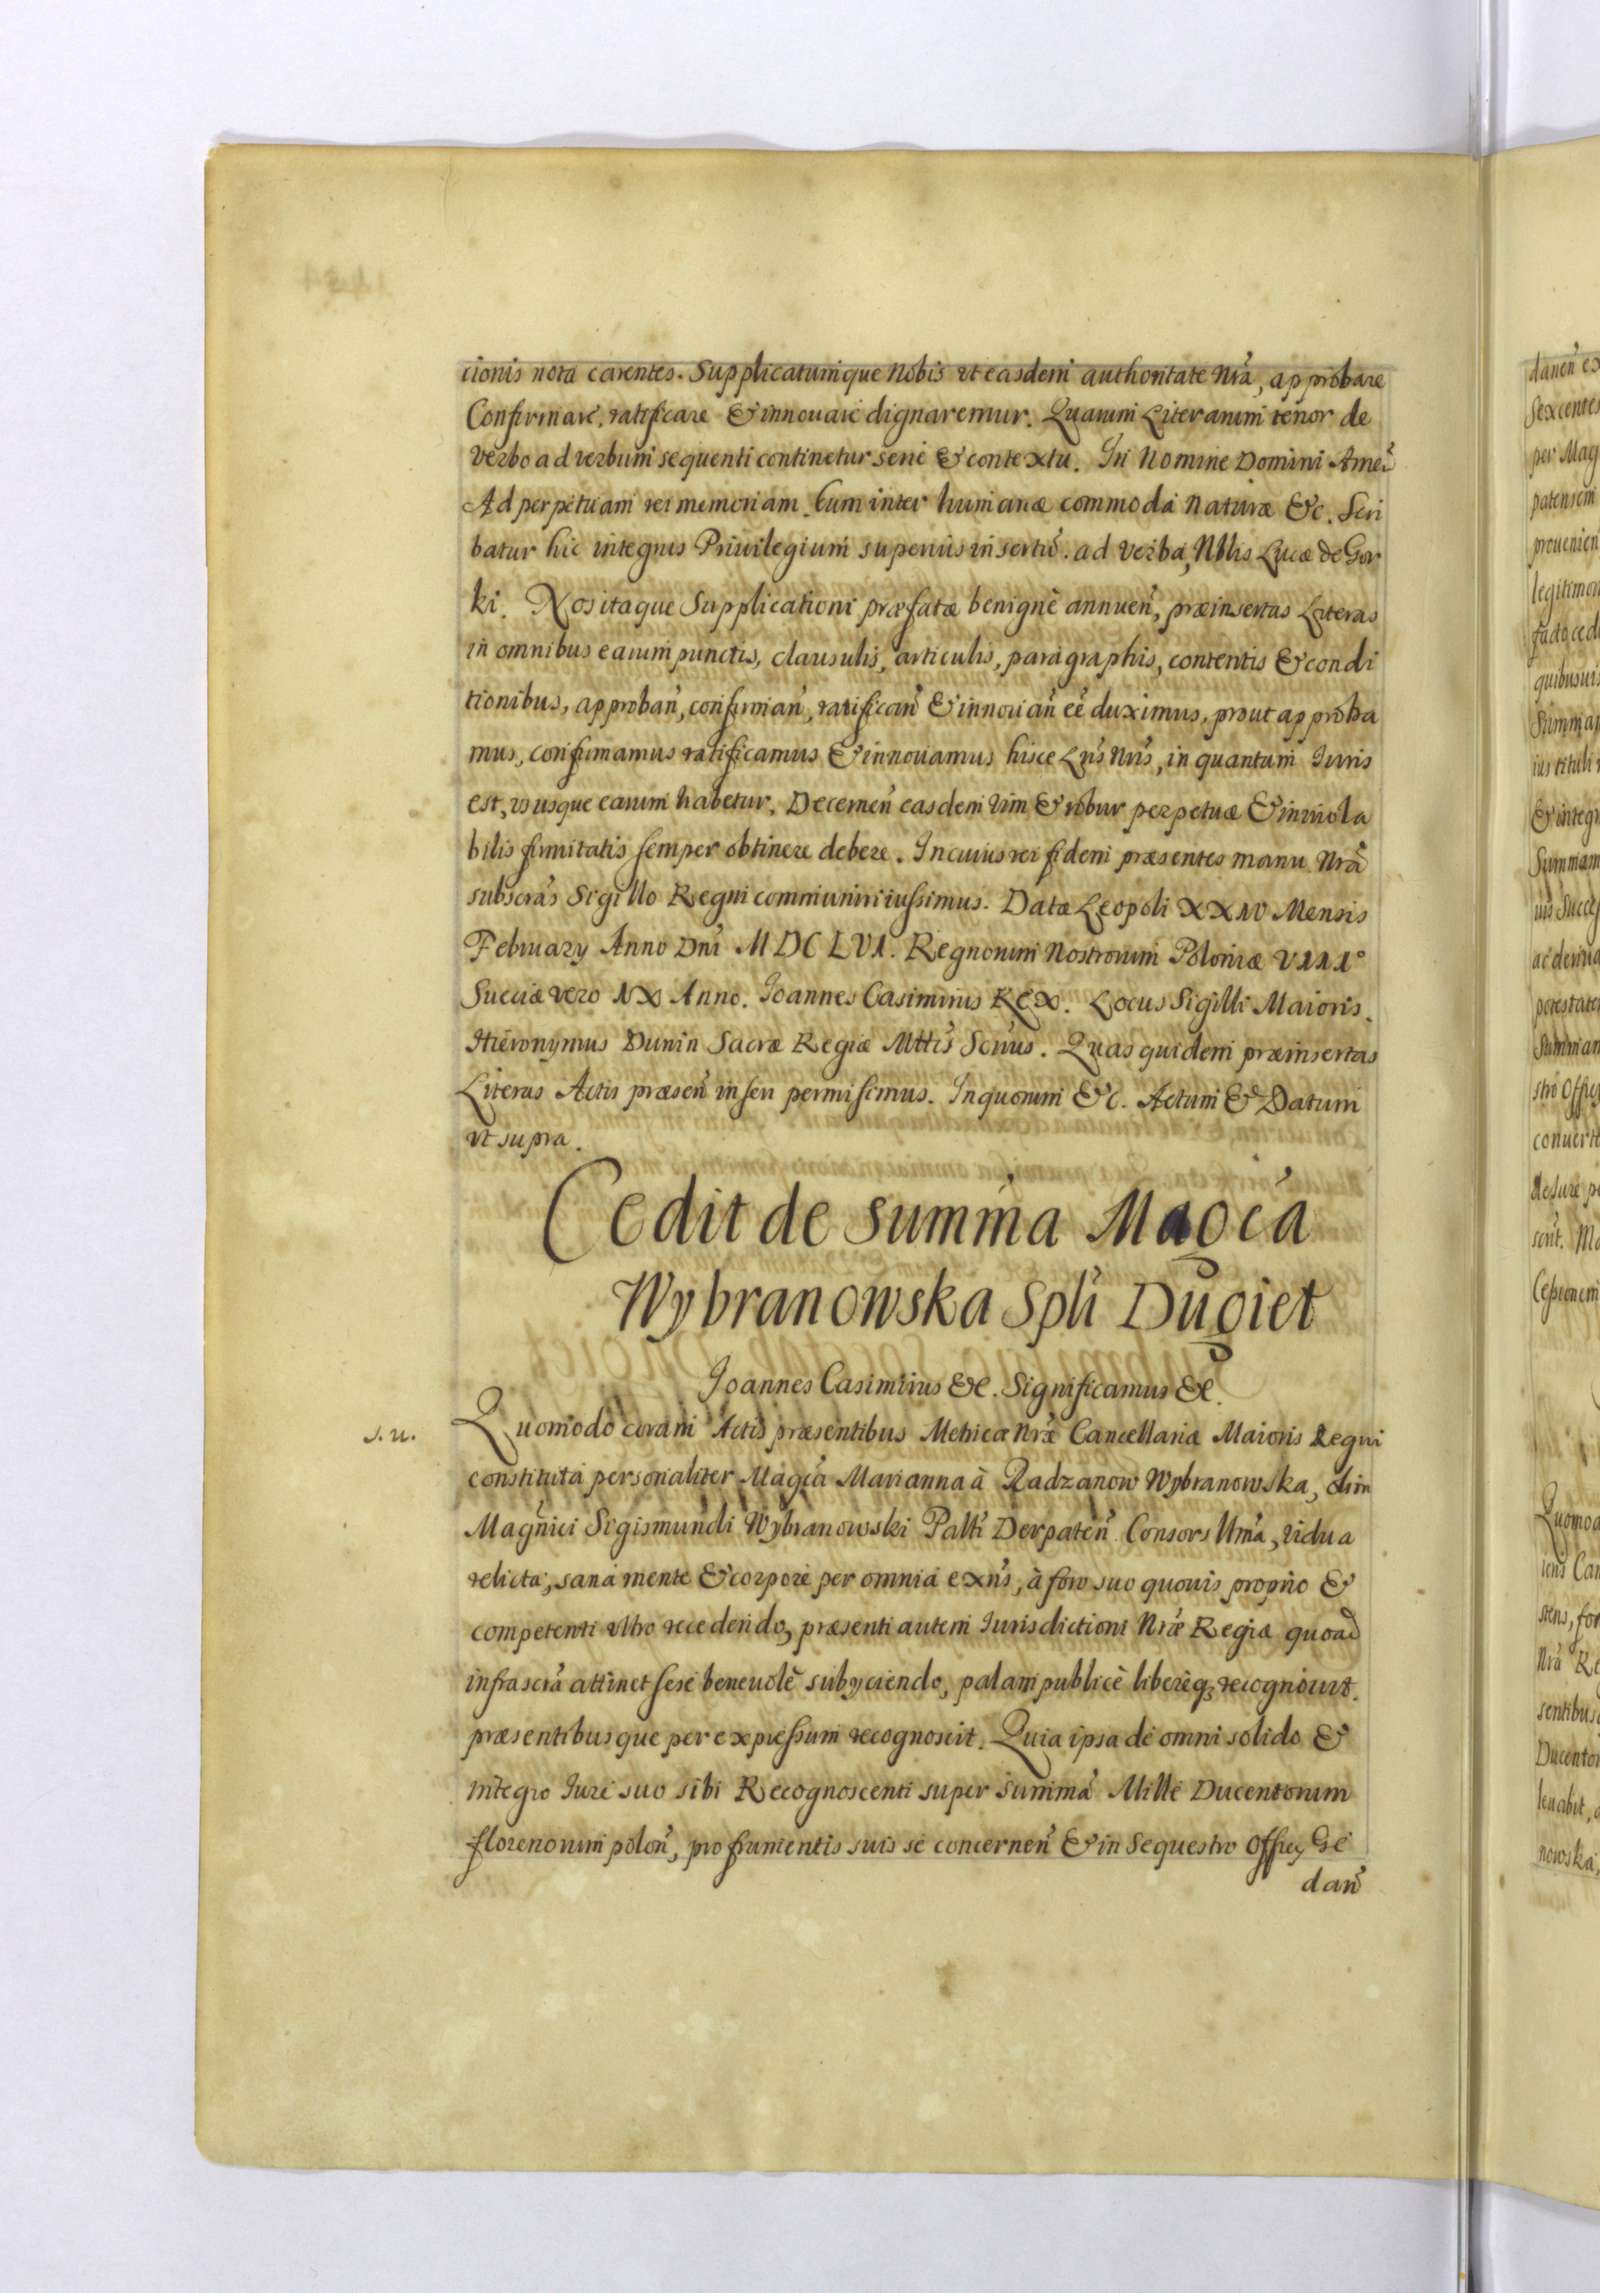 cionis nota carentes. Supplicatumque Nobis ut easdem authoritate Nrã, approbare
Confirmare, ratificare & innouare dignaremur. Quarum Literarum tenor de
verbo ad verbum sequenti continetur serie & contextu. In Nomine Domini Amen̄
Ad perpetuam rei memoriam. Cum inter humanæ commoda Naturæ &c. Scri
batur hic integrus Priuilegium superius insertũ. ad verba, Nblis Lucæ de Gor
ki. Nos itaque Supplicationi præfatæ benignè annuen̄, præinsertas Literas
in omnibus earum punctis, clausulis, articulis, paragraphis, contentis & condi
tionibus, approban̄, confirman̄, ratifican̄ & innouan̄ eẽ duximus, prout approba
mus, confirmamus ratificamus & innouamus hisce Lr̃is Nr̃is, in quantum Iuris
est, ususque earum habetur, Decernen̄ easdem vim & robur perpetuæ & inuiola
bilis firmitatis semper obtinere debere. In cuius rei fidem præsentes manu Nrã
subscrãs Sigillo Regni communiri iussimus. Datæ Leopoli XXIV Mensis
February Anno Dnĩ MDCLVI. Regnorum Nostrorum Poloniæ VIII°
Sueciæ vero IX Anno. Ioannes Casimirus Rex. Locus Sigilli Maioris.
Hieronymus Dunin Sacræ Regiæ Mttis Scrius. Quas quidem præinsertas
Literas Actis præsen̄ inseri permisimus. In quorum &c. Actum & Datum
ut supra.
Cedit de summa Magca
Wybranowska Spli Dugiet
Ioannes Casimirus &c. Significamus &c.
s.u.
Quomodo coram Actis præsentibus Metricæ Nræ Cancellariæ Maioris Regni
constituta personaliter Magca Marianna à Radzanow Wybranowska, olim
Magnici Sigismundi Wybranowski Palti Derpaten̄ Consors Uma, vidua
relicta, sana mente & corpore per omnia exñs, à foro suo quouis proprio &
competenti ultro recedendo, præsenti autem Iurisdictioni Nræ Regiæ quoad
infrascrã attinet sese beneuolè subyciendo, palam publicè liberèq; recognouit.
præsentibusque per expressum recognoscit. Quia ipsa de omni solido &
integro Iure suo sibi Recognoscenti super summã Mille Ducentorum
florenorum polon̄, pro frumentis suis se concernen̄ & in Sequestro Officy Ge
dan̄